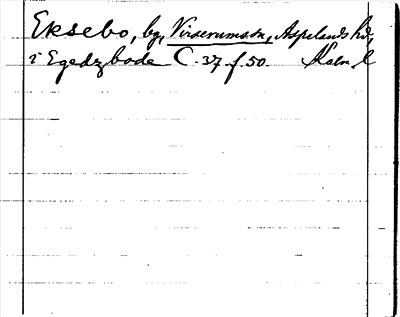 Eksebo, by, Virserums sn, Aspelands hd,
i Egedzbode C. 37 f. 50. Kalm. l